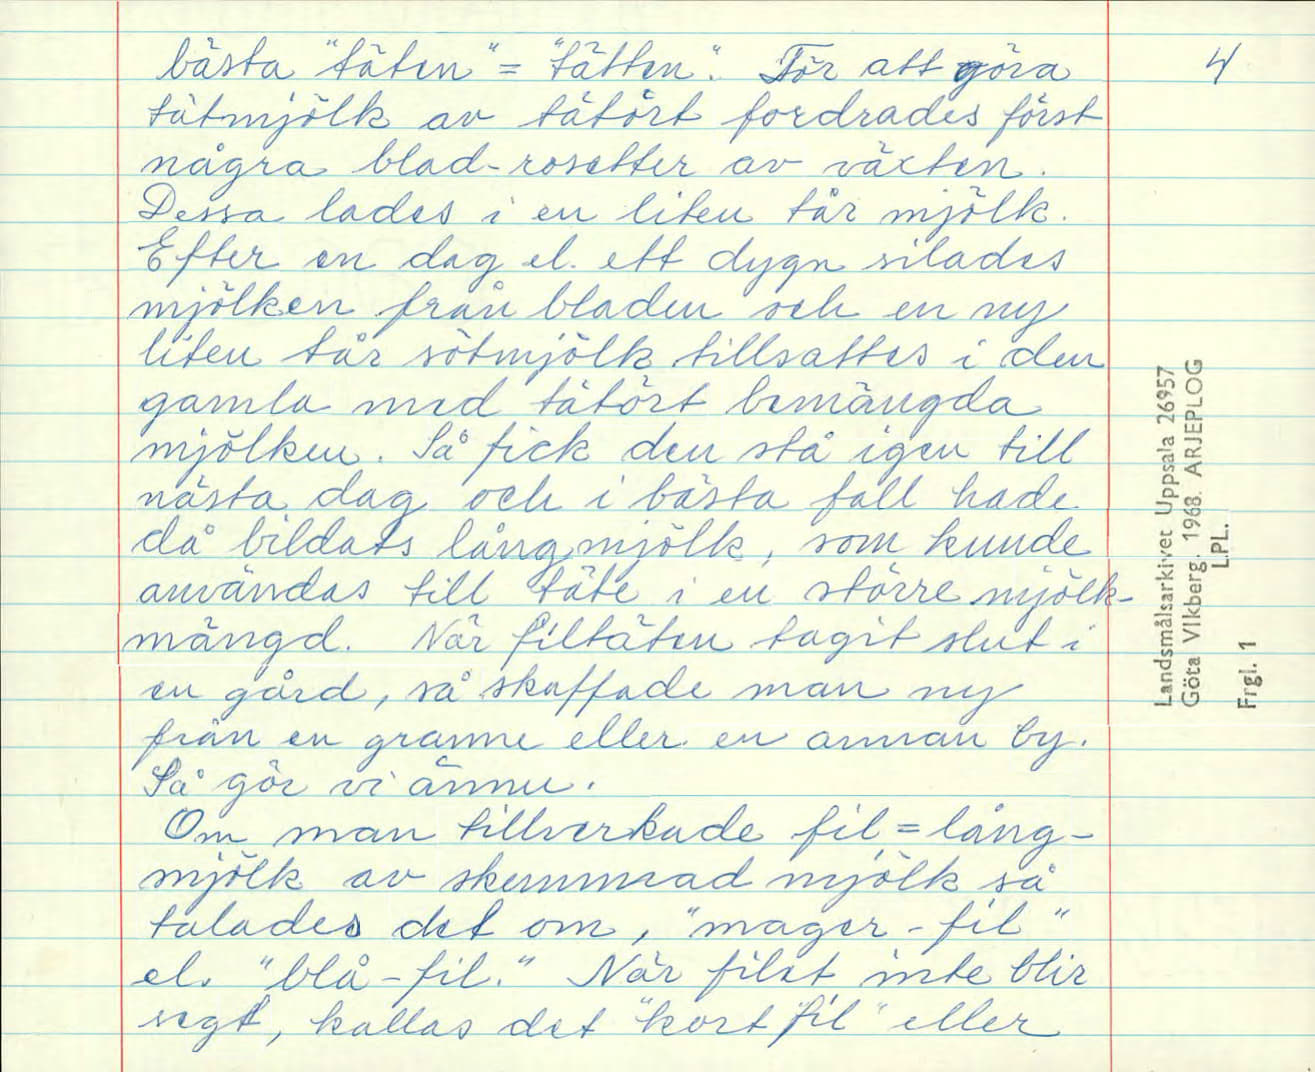 bästa "täten" = "tätten". För att göra
tätmjölk av tätört fordrades först
några blad-rosetter av växten.
Dessa lades i en liten tår mjölk.
Efter en dag el. ett dygn silades
mjölken från bladen och en ny
liten tår sötmjölk tillsattes i den
gamla med tätört bemängda
mjölken. Så fick den stå igen till
nästa dag och i bästa fall hade
då bildats långmjölk, som kunde
användas till täte i en större mjölk-
mängd. När filtäten tagit slut i
en gård, så skaffade man ny
från en granne eller en annan by.
Så gör vi ännu.
Om man tillverkade fil = lång-
mjölk av skummad mjölk så
talades det om, "mager-fil"
el. "blå-fil." När filet inte blir
segt, kallas det "kort fil" eller
4
Landsmålsarkivet Uppsala 26957
Göta Vikberg. 1968. ARJEPLOG
LPL.
Frgl. 1